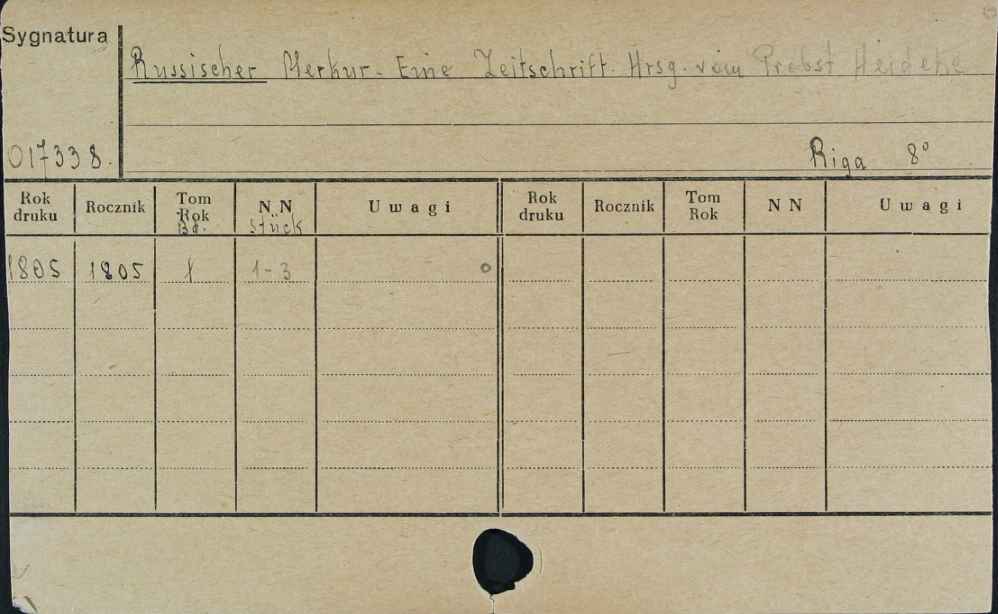 Sygnatura
Russischer Merkur. Eine Zeitschrift. Hrsg. vom Probst Heideke
017338.
Riga 8°
Rok druku Rocznik Tom Rok Bd. N N Stück Uwagi Rok druku Rocznik Tom Rok N N Uwagi
1805 1805 1 1-3